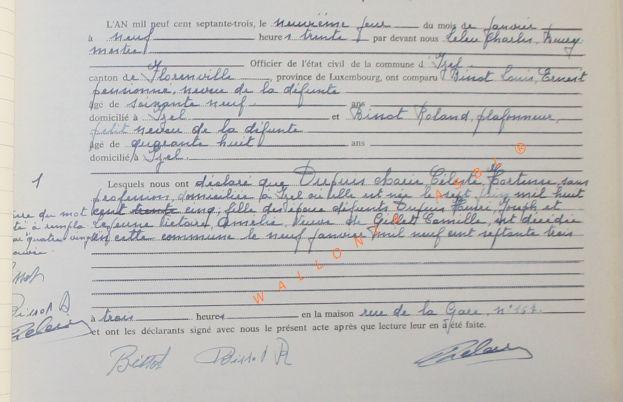 L'AN mil neuf cent septante-trois, le neuvième jour du mois de janvier
à neuf heures trente par devant nous Charles, Bourg-
mestre
Officier de l'état civil de la commune d'Izel
canton de Florenville, province de Luxembourg, ont comparu Binot Louis, Ernest
pensionné, neveu de la défunte
âgé de soixante neuf ans
domicilié à Izel et Binot Roland, plafonneur,
petit neveu de la défunte
âgé de quarante huit ans
domicilié à Izel.
1
Lesquels nous ont déclaré que Dupuis Marie Céleste Hortense sans
profession, domiciliée à Izel où elle est née le sept mil huit
du mot cent trente cinq, fille des époux défunts Dupuis Henri Joseph et
Lejeune Victoire, Amélie, veuve de Gillet Camille, est décédée
en cette commune le neuf janvier mil neuf cent septante trois
WALLONIA ASBL ®
à trois heures en la maison rue de la Gare, n°
et ont les déclarants signé avec nous le présent acte après que lecture leur en a été faite.
Binot Binot R